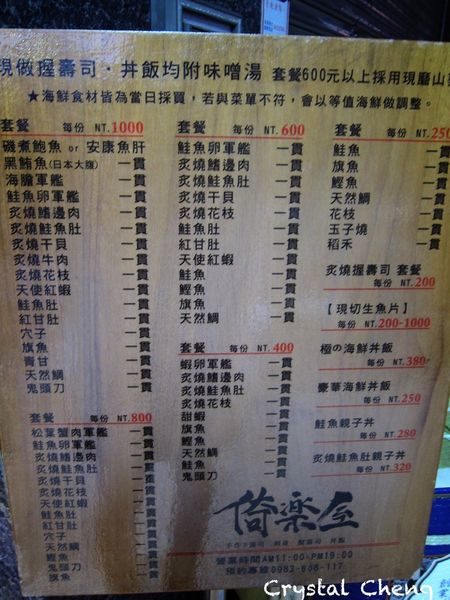 現做握壽司．丼飯均附味噌湯 套餐600元以上採用現磨山
★海鮮食材皆為當日採買，若與菜單不符，會以等值海鮮做調整。
套餐 每份 NT.1000
磯煮鮑魚 or 安康魚肝 一貫
黑鮪魚(日本大腹) 一貫
海膽軍艦 一貫
鮭魚卵軍艦 一貫
炙燒鰭邊肉 一貫
炙燒鮭魚肚 一貫
炙燒干貝 一貫
炙燒牛肉 一貫
炙燒花枝 一貫
天使紅蝦 一貫
鮭魚肚 一貫
紅甘肚 一貫
穴子 一貫
旗魚 一貫
青甘 一貫
天然鯛 一貫
鬼頭刀 一貫
套餐 每份 NT.800
松葉蟹肉軍艦 一貫
鮭魚卵軍艦 一貫
炙燒鰭邊肉 一貫
炙燒鮭魚肚 一貫
炙燒干貝 一貫
炙燒花枝 一貫
天使紅蝦 一貫
鮭魚肚 一貫
紅甘肚 一貫
穴子 一貫
天然鯛 一貫
鰹魚 一貫
鬼頭刀 一貫
旗魚 一貫
套餐 每份 NT.600
鮭魚卵軍艦 一貫
炙燒鰭邊肉 一貫
炙燒鮭魚肚 一貫
炙燒干貝 一貫
炙燒花枝 一貫
鮭魚肚 一貫
紅甘肚 一貫
天使紅蝦 一貫
鮭魚 一貫
鰹魚 一貫
旗魚 一貫
天然鯛 一貫
套餐 每份 NT.400
蝦卵軍艦 一貫
炙燒鰭邊肉 一貫
炙燒鮭魚肚 一貫
炙燒花枝 一貫
甜蝦 一貫
旗魚 一貫
鰹魚 一貫
天然鯛 一貫
鮭魚 一貫
鬼頭刀 一貫
套餐 每份 NT.250
鮭魚 一貫
旗魚 一貫
鰹魚 一貫
天然鯛 一貫
花枝 一貫
玉子燒 一貫
稻禾 一貫
炙燒握壽司 套餐
每份 NT.200
【現切生魚片】
每份 NT.200-1000
極の海鮮丼飯
每份 NT.380
豪華海鮮丼飯
每份 NT.250
鮭魚親子丼
每份 NT.280
炙燒鮭魚肚親子丼
每份 NT.320
倚楽屋
營業時間AM11:00-PM19:00
預約專線0983-658-117
Crystal Cheng